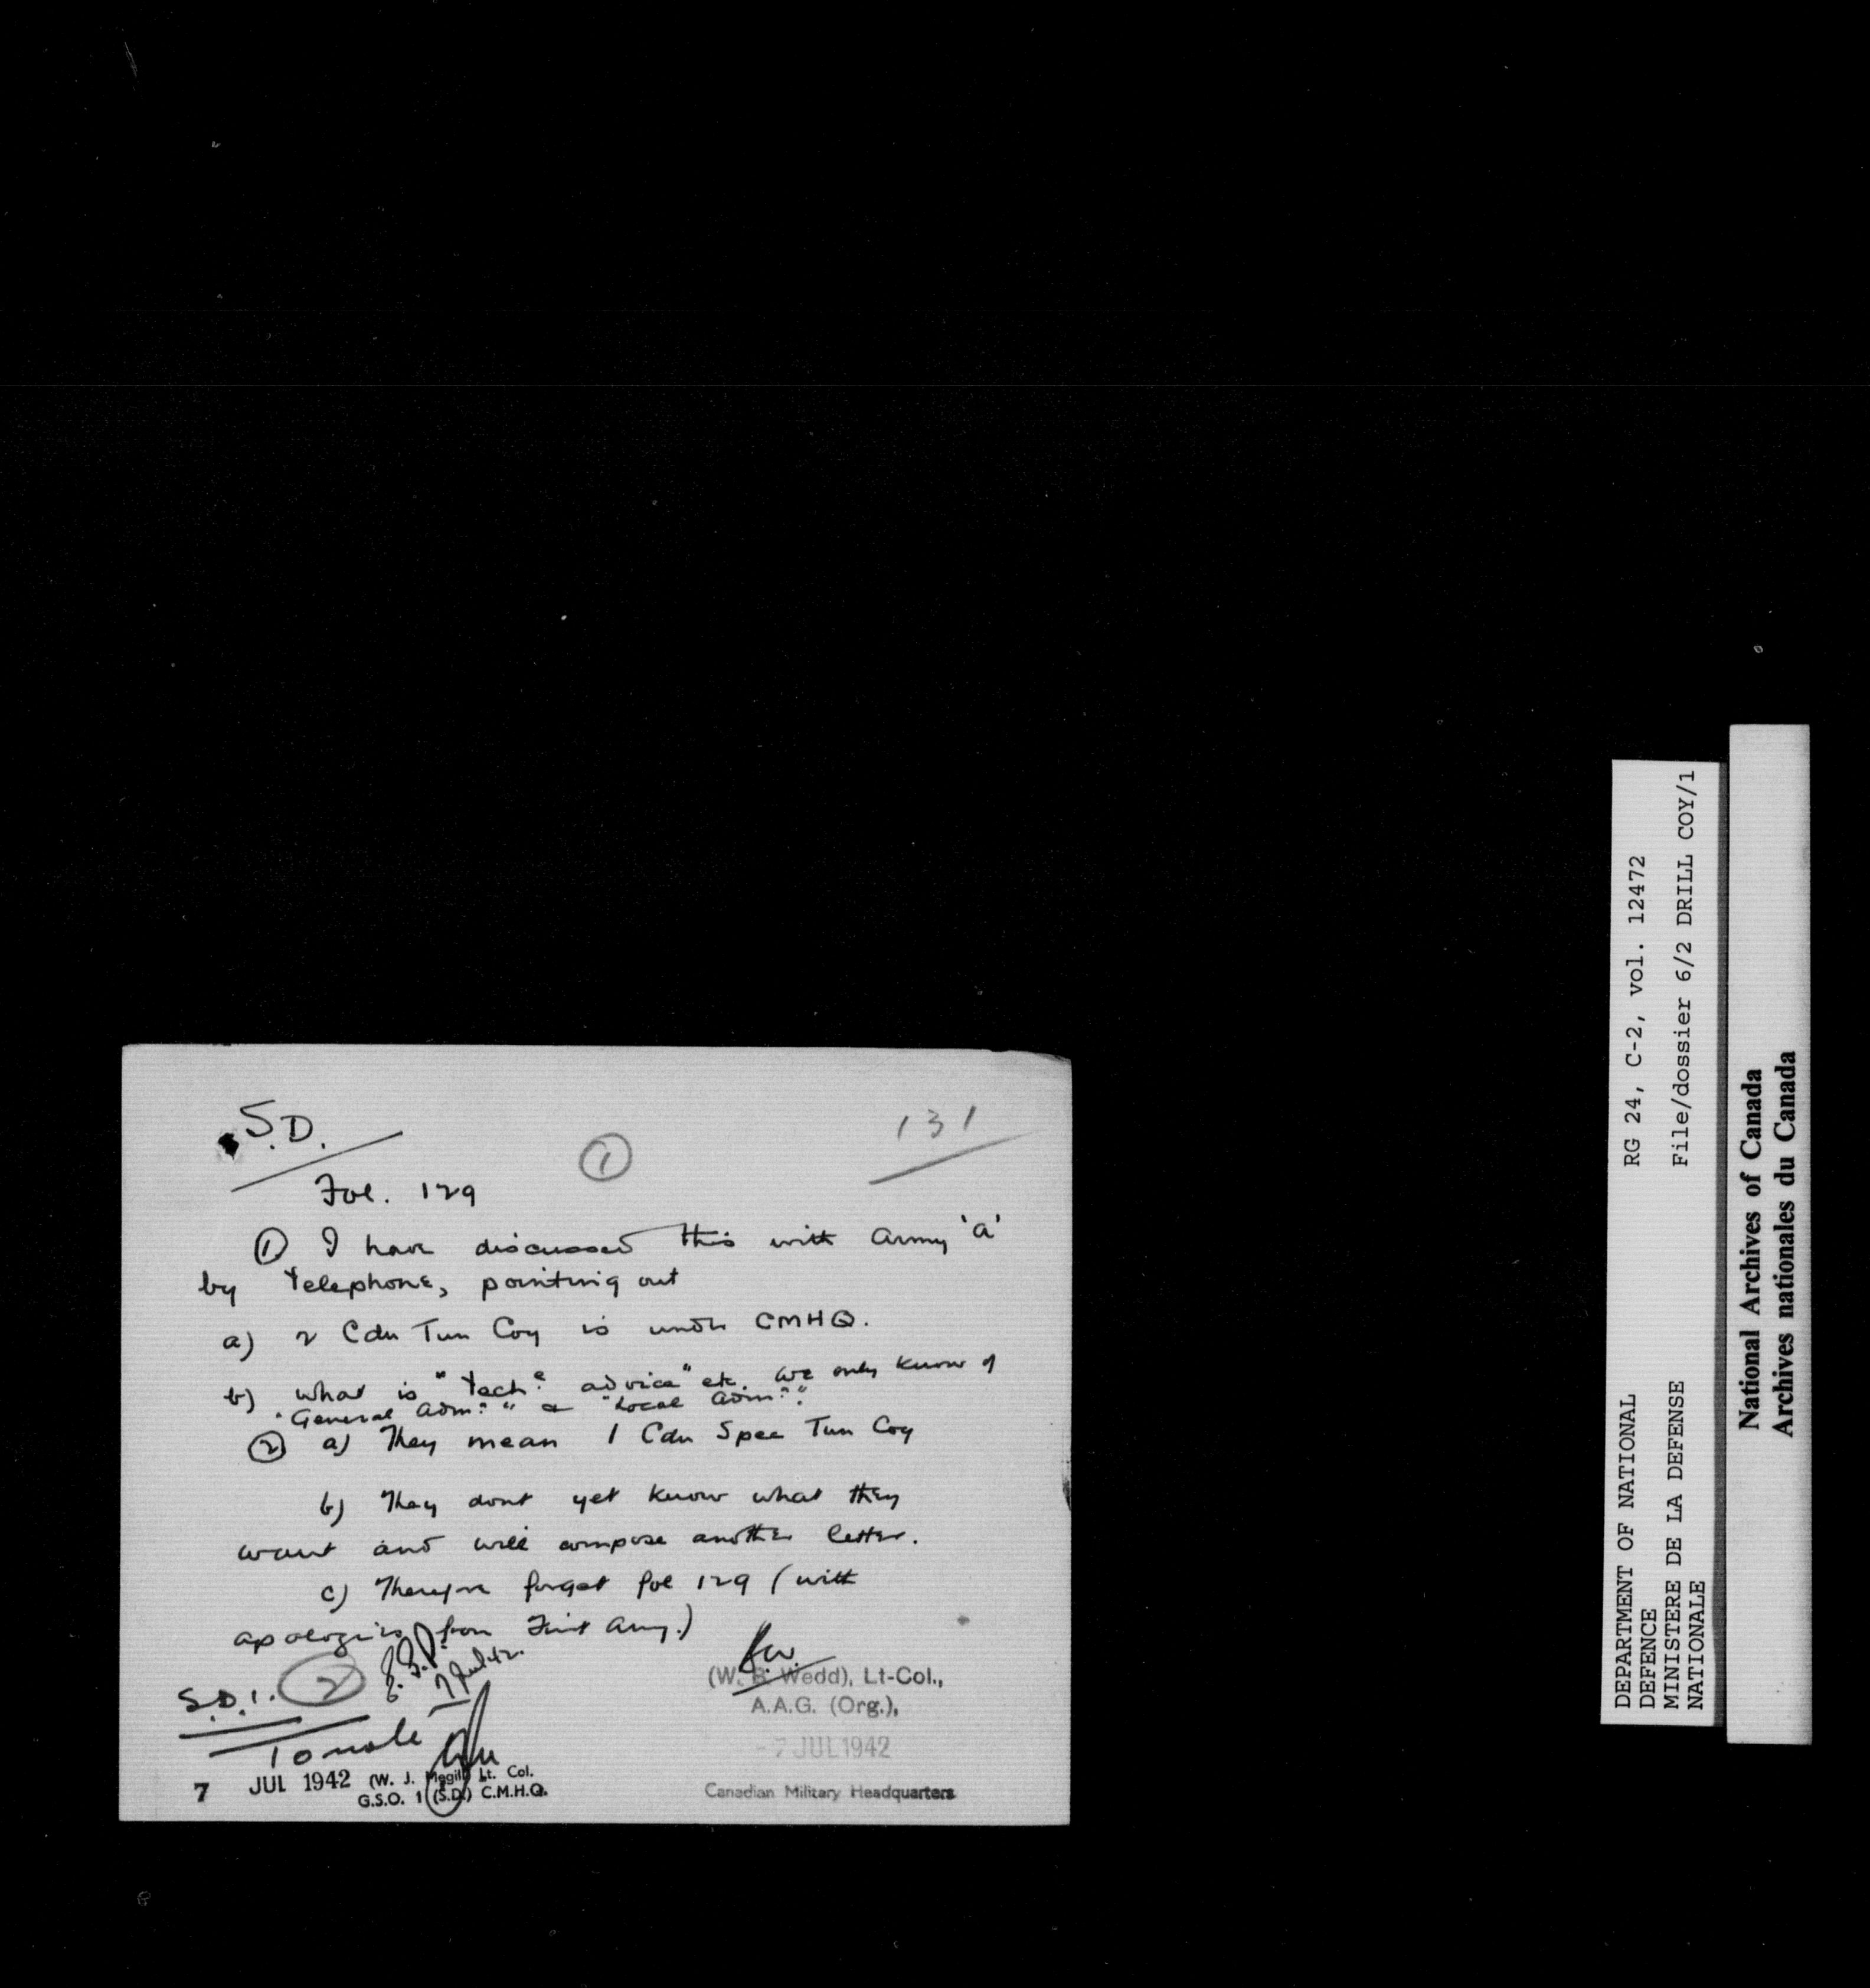 S.D.
①
131
Fol. 129
① I have discussed this with Army 'A'
by telephone, pointing out
a) 2 Cdn Tun Coy is under CMHQ.
b) what is "tech. advice" etc. We only know of
"General Adm." & "Local Adm.".
② a) They mean 1 Cdn Spec Tun Coy
b) They dont yet know what they
want and will compose another letter.
c) Therefore forget fol 129 (with
apologies from First Army.)
7 Jul 42.
S.D.1. ②
To note
7 JUL 1942 (W. J. Megill) Lt. Col.
G.S.O. 1 (S.D.) C.M.H.Q.
(W. B. Wedd), Lt-Col.,
A.A.G. (Org.),
- 7 JUL 1942
Canadian Military Headquarters
DEPARTMENT OF NATIONAL
DEFENCE
MINISTERE DE LA DEFENSE
NATIONALE
RG 24, C-2, vol. 12472
File/dossier 6/2 DRILL COY/1
National Archives of Canada
Archives nationales du Canada